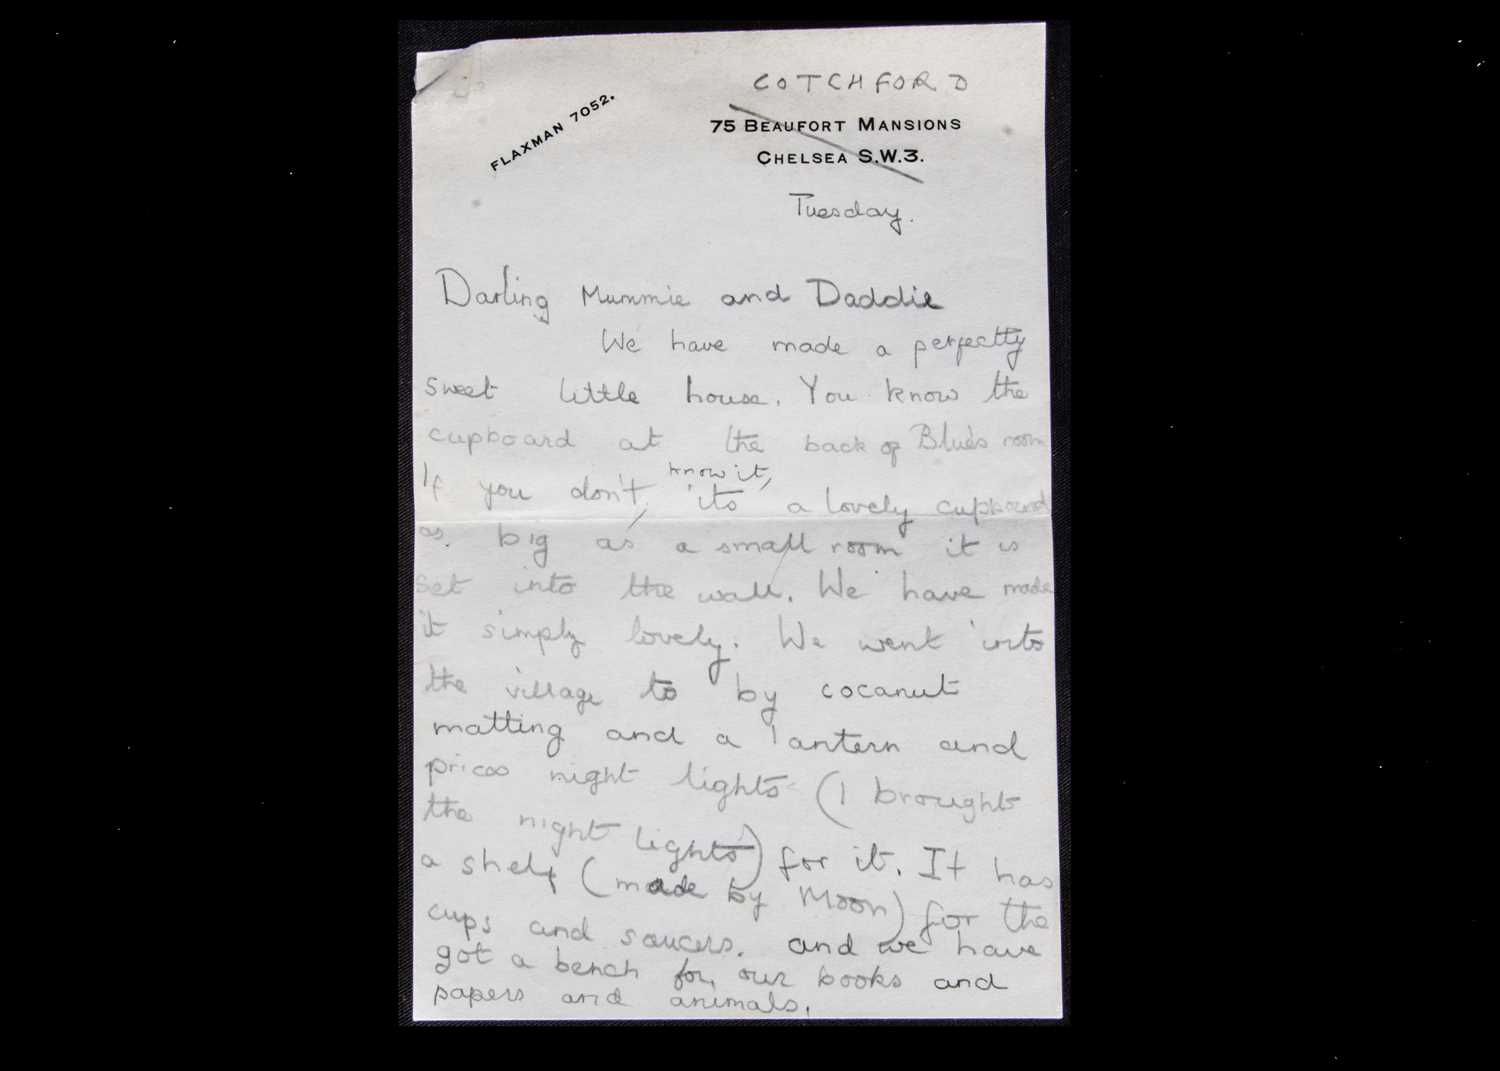 COTCHFORD
FLAXMAN 7052.
75 BEAUFORT MANSIONS
CHELSEA S.W.3.
Tuesday.
Darling Mummie and Daddie
We have made a perfectly
sweet little house. You know the
cupboard at the back of Blue's room
If you don't know it, its a lovely cupboard
as big as a small room it is
set into the wall. We have made
it simply lovely. We went into
the village to by cocanut
matting and a lantern and
prices night lights (I brought
the night lights) for it. It has
a shelf (made by Moon) for the
cups and saucers. and we have
got a bench for our books and
papers and animals.